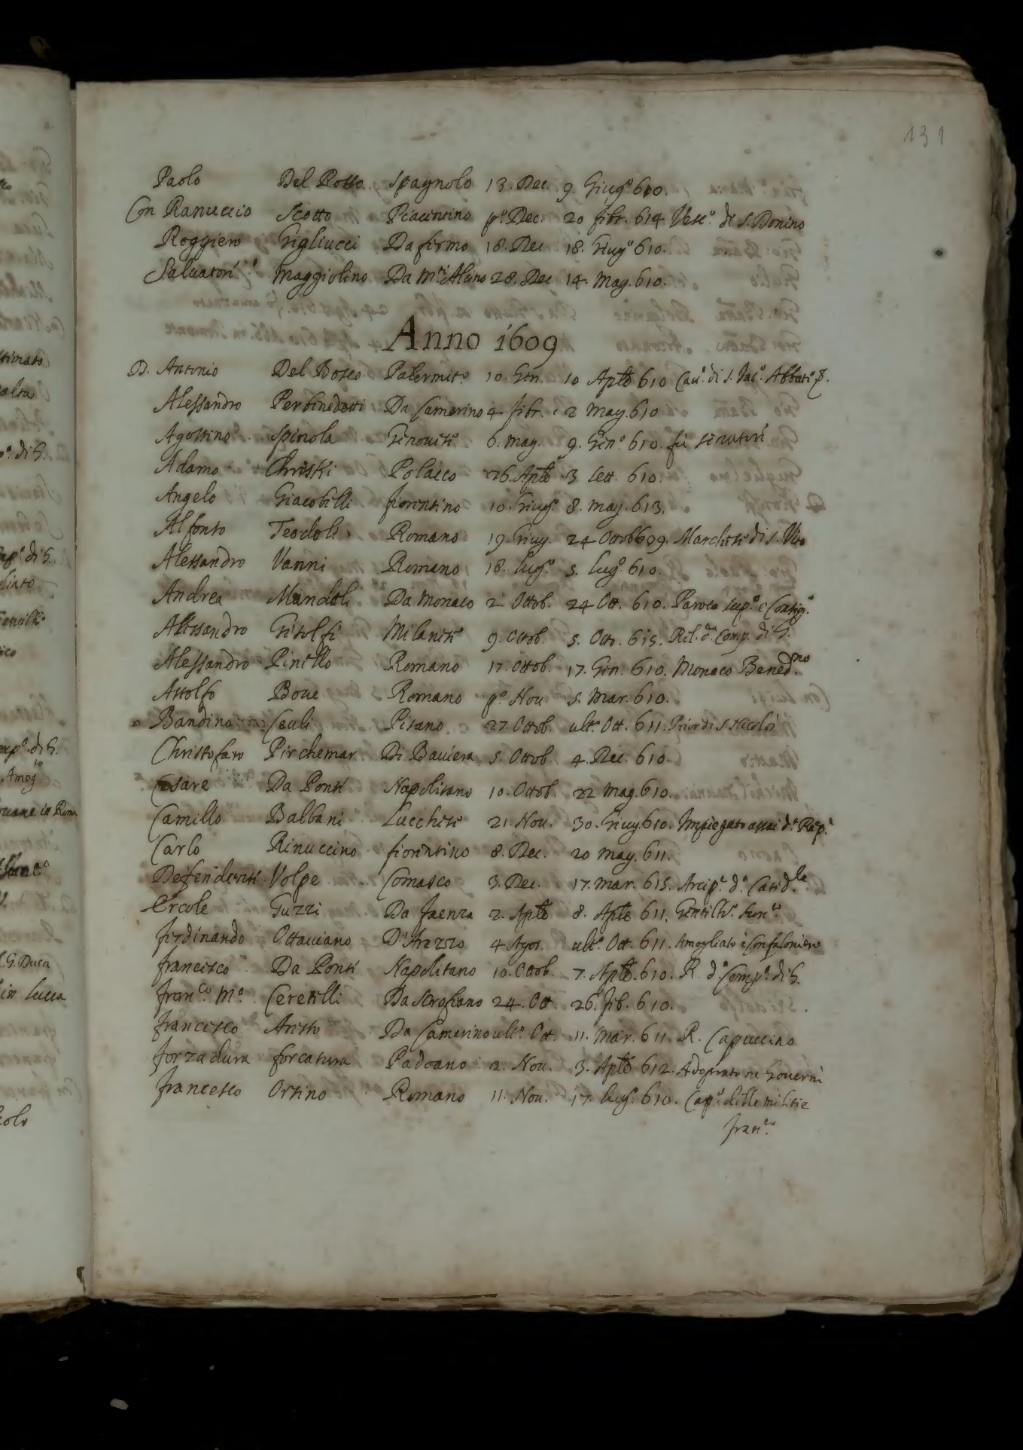 131
Paolo Del Rosso Spagnolo 13. Dec. 9. Giug.º 610.
Con Ranuccio Scotto Piacentino pº. Dec. 20 febr. 614 Vesc.º di S. Donino
Roggiero Gigliucci Da fermo 18. Dec 18. Giug.º 610.
Salvatore Maggiolino Da Mte Alano 28. Dec 14. May. 610.
Anno 1609
D. Antonio Del Bosco Palermit.º 10. Gen. 10 Aple 610 Cau.º di S. Iac.º Abbate
Alessandro Perbenedetti Da Camerino 4 febr. 2 May. 610
Agostino Spinola Genovese 6. May. 9. Gen.º 610. fù
Adamo Polacco 26. Aple 3 Sett. 610.
Angelo Giacobelli fiorentino 10. Giug.º 8. May. 613.
Alfonso Teodoli Romano 19. Giug. 24 Ottob 609. Marchese di S. Vito
Alessandro Vanni Romano 18. Lug.º 5. Lug.º 610.
Andrea Mandoli Da Monaco 2. Ottob. 24 Ott. 610. Paroco
Alessandro Milanese 9. Ottob. 5. Ott. 615. Rel. d.ª Comp. di G.
Alessandro Pinello Romano 17. Ottob. 17. Gen. 610. Monaco Bened.no
Astolfo Boue Romano pº. Nou 5. Mar. 610.
Bandino Seuli Pisano 22. Ottob. ult.º Ott. 611. Prior di S. Nicolò
Christofaro Pirchemar Di Baviera 5. Ottob. 4. Dec. 610
Cesare Da Ponte Napolitano 10. Ottob. 22 May. 610.
Camillo Balbani Lucchese 21. Nou. 30. Giug 610. Impiegato assai d.ª Rep.ª
Carlo Rinuccino fiorentino 8. Dec. 20 May. 611.
Defendente Volpe Comasco 3. Dec. 17. Mar. 615. Arcip.e d.ª Catid.le
Ercole Guzzi Da faenza 2. Aple 8. Aple 611.
ferdinando Ottaviano D'Arezzo 4 Agos. ult.º Ott. 611. Amogliato è Confaloniero
francesco Da Ponte Napolitano 10. Ottob. 7. Aple 610. R. d.ª Comp.ª di G.
fran.co M.ª Ceretelli 24. Ott. 26. feb. 610.
francesco Aristo Da Camerino ult.º Ott. 11. Mar. 611. R. Capuccino
forzadura forcatura Padoano 2. Nou. 3. Aple 612. Adoprato ne Governi
francesco Orsino Romano 11. Nou. 17. Lug.º 610. Cap.º delle militie
fran.co